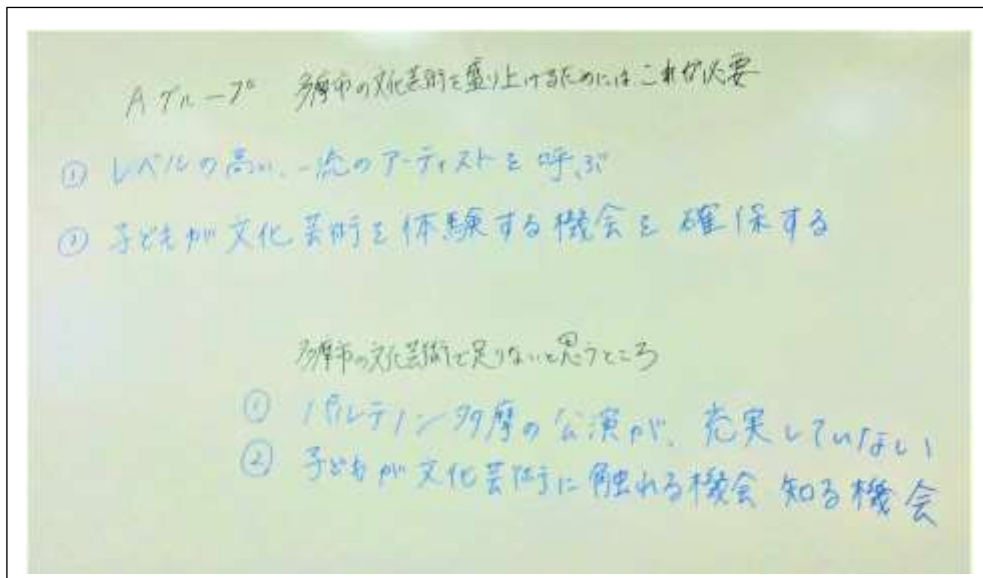 Aグループ 多摩市の文化芸術を盛り上げるためにはこれが必要
① レベルの高い、一流のアーティストを呼ぶ
② 子どもが文化芸術を体験する機会を確保する
多摩市の文化芸術で足りないと思うところ
① パルテノン多摩の公演が、充実していない
② 子どもが文化芸術に触れる機会 知る機会